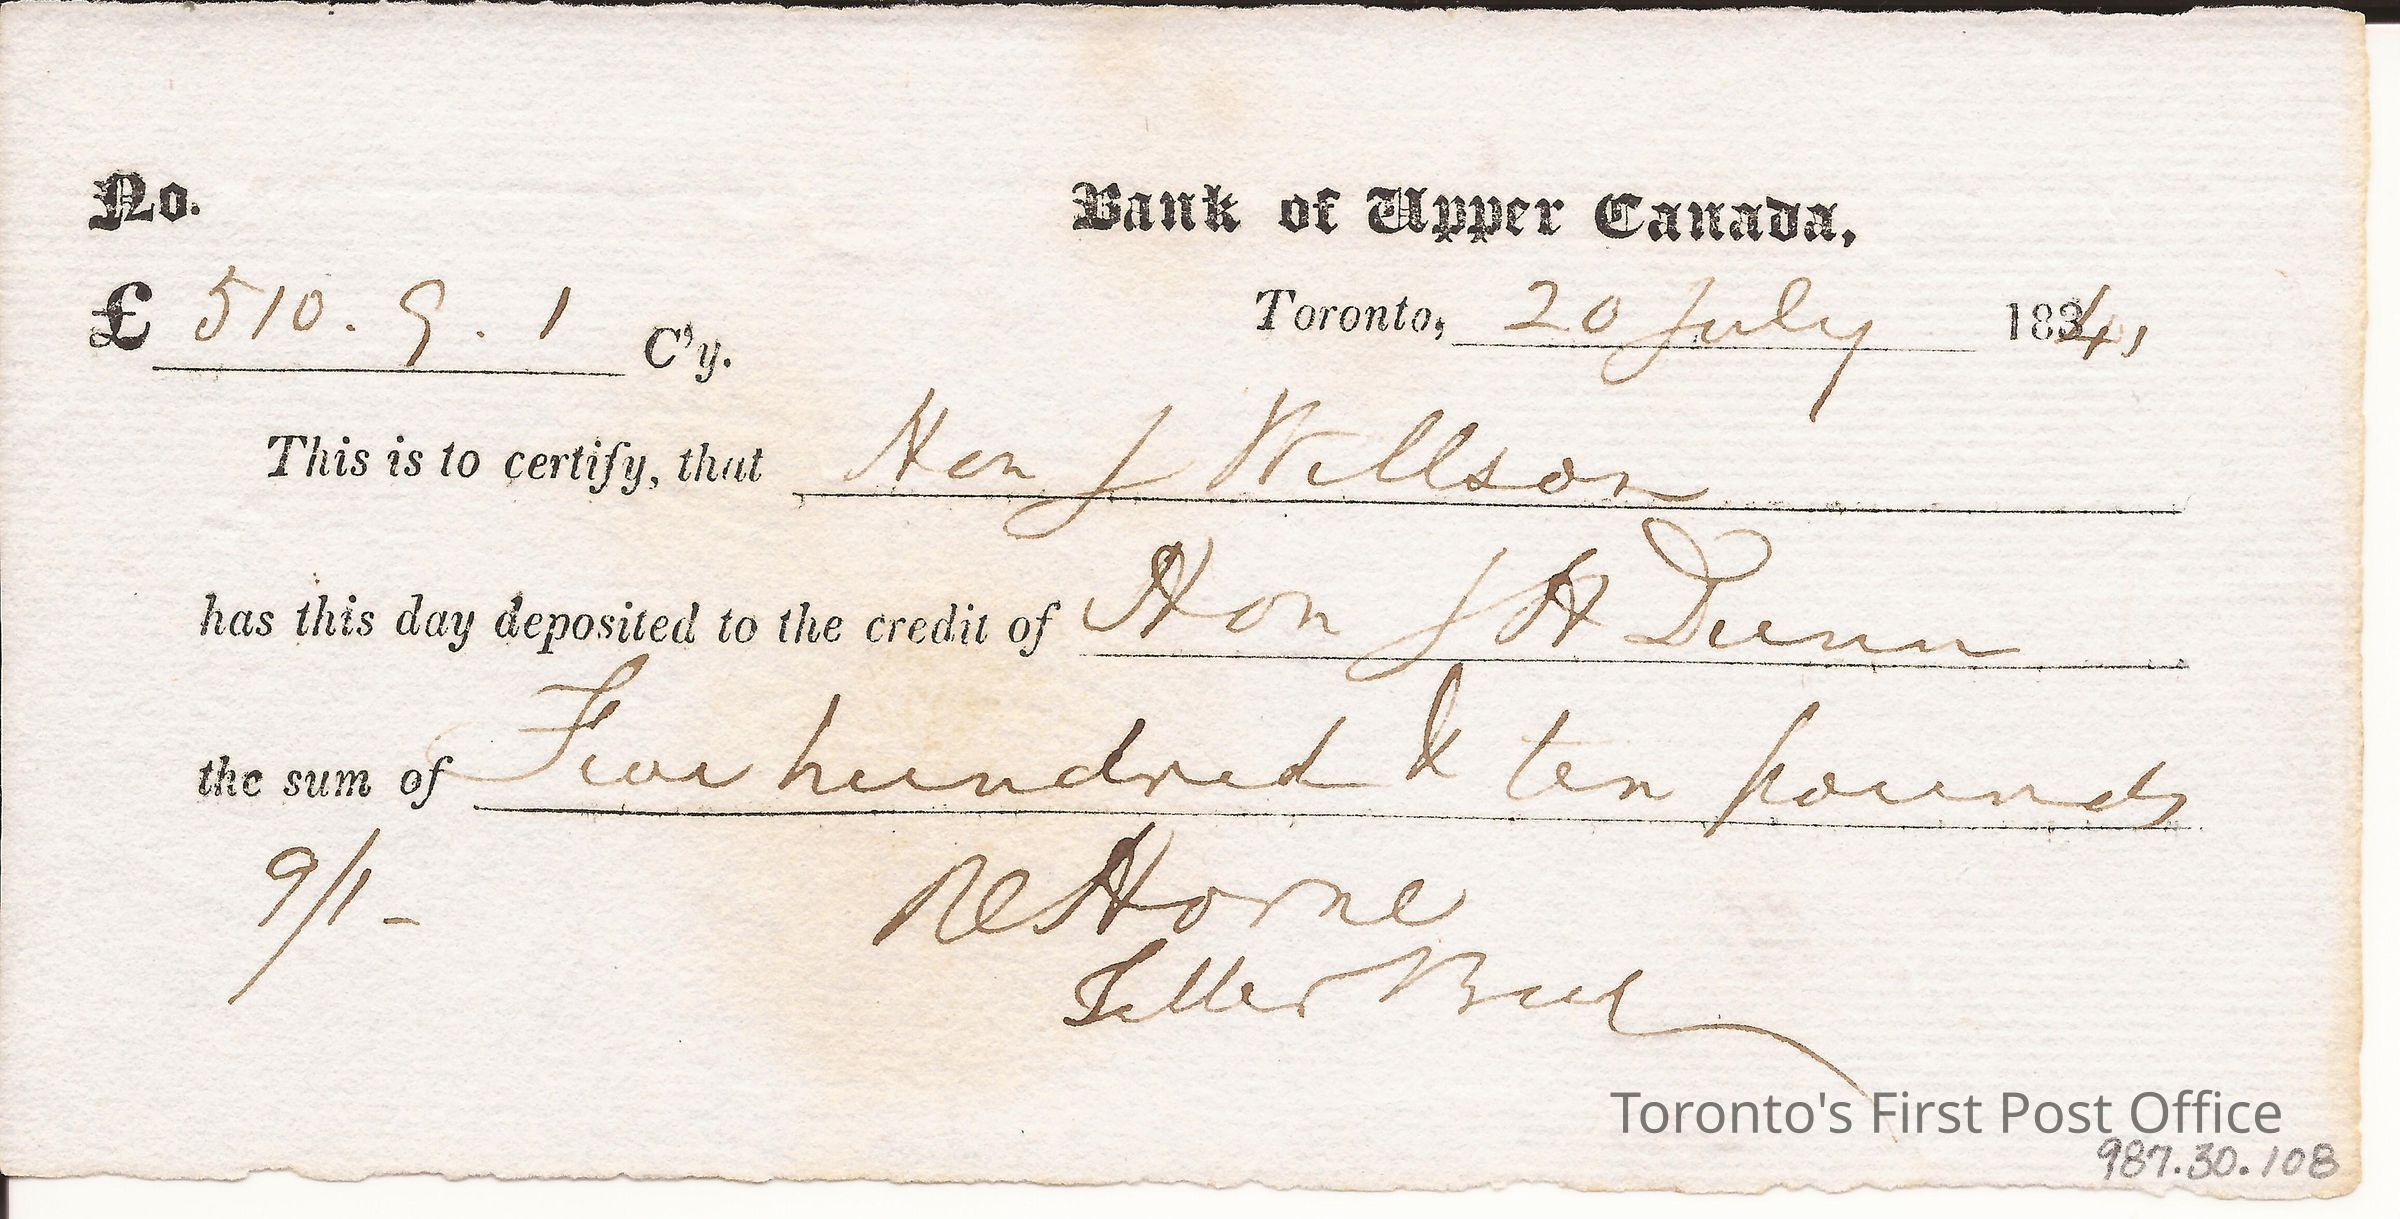 No. Bank of Upper Canada,
£ 510. 9. 1 C'y. Toronto, 20 July 1841
This is to certify, that Hon J Willson
has this day deposited to the credit of Hon J H Dunn
the sum of Five hundred & ten pounds
9/1 -
R C Horne
Teller B U C
Toronto's First Post Office
987.30.108